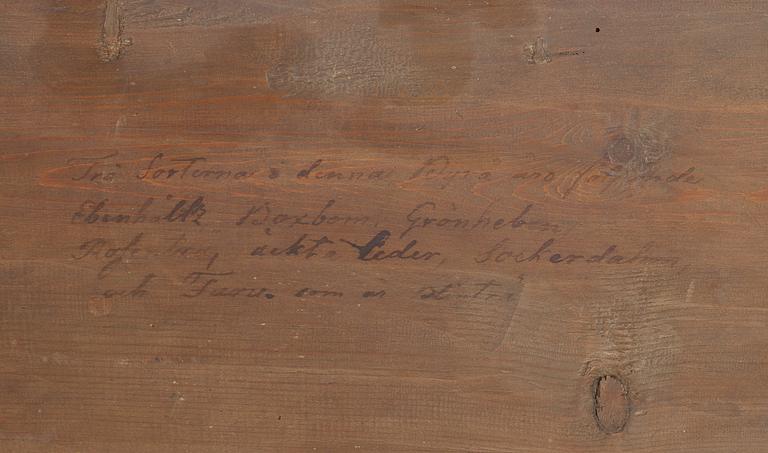 Trä Sorterna i denna äro följande
Ebenholtz Boxbom, Grönheben,
äckta Ceder, Sockerdahn,
och Furu. som är